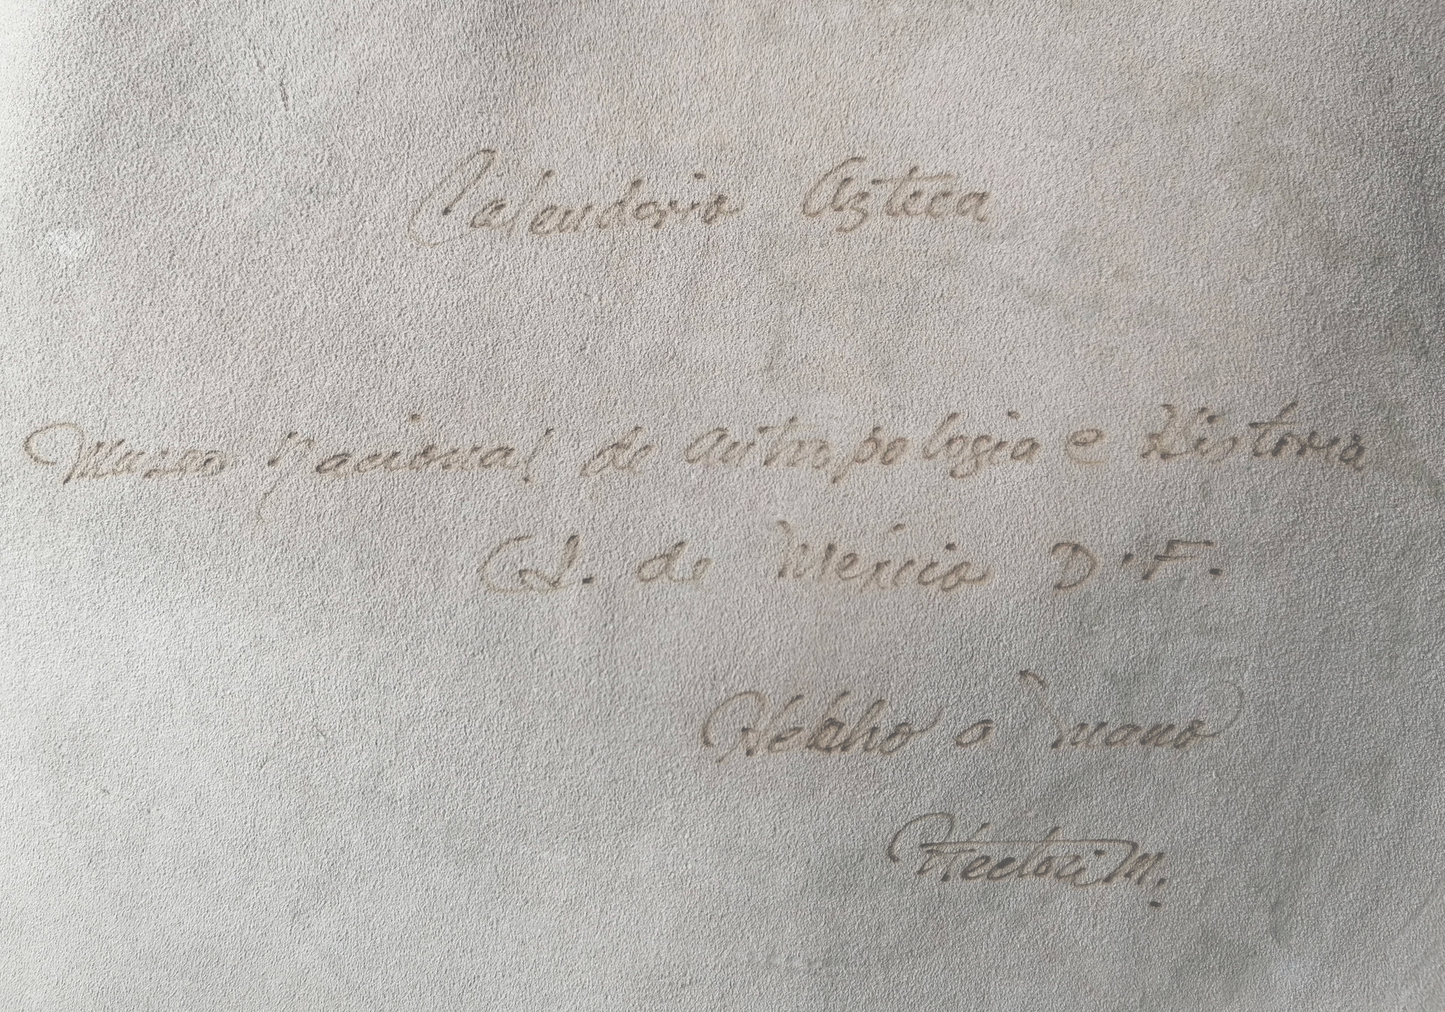 Calendario Azteca
Museo Nacional de Antropologia e Historia
Cd. de México D.F.
Hecho a mano
Hector M.